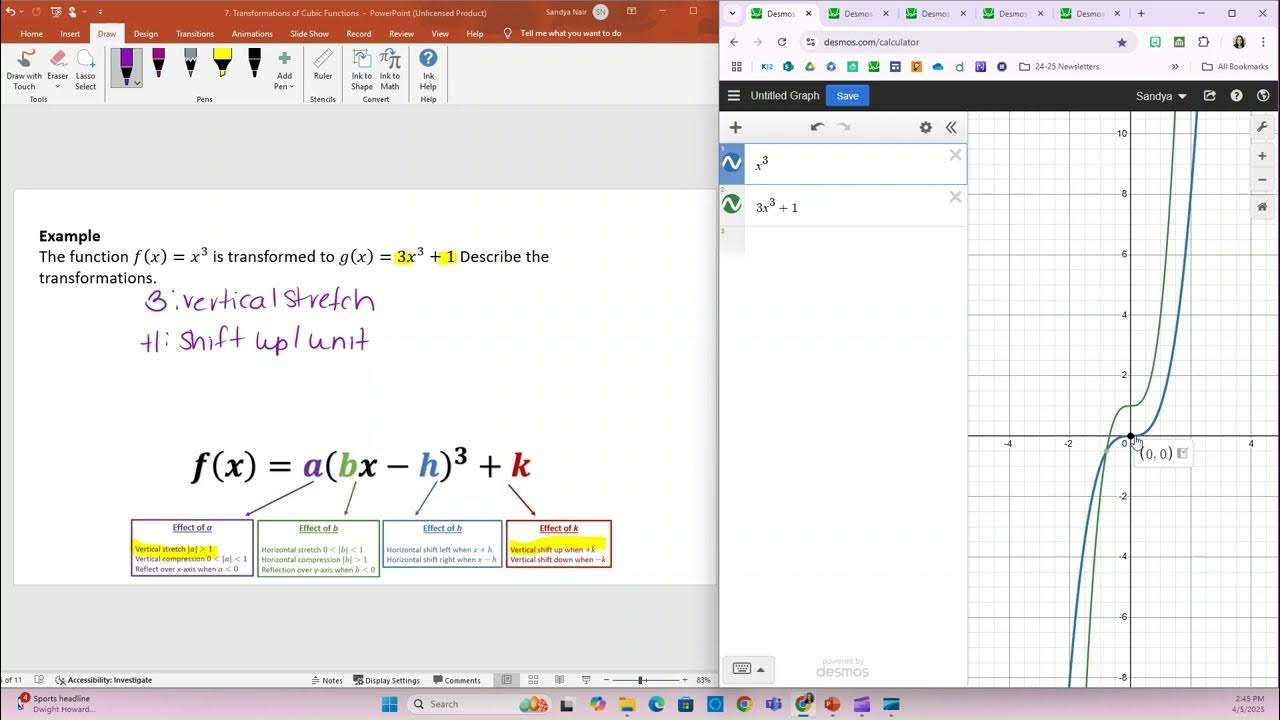 7. Transformations of Cubic Functions - PowerPoint (Unlicensed Product)
Sandya Nair
SN
Home Insert Draw Design Transitions Animations Slide Show Record Review View Help Tell me what you want to do
Draw with Touch
Eraser
Lasso Select
Add Pen
Ruler
Ink to Shape
Ink to Math
Ink Help
Tools Pens Stencils Convert Help
Example
The function f(x) = x³ is transformed to g(x) = 3x³ + 1 Describe the
transformations.
3: vertical stretch
+1: shift up 1 unit
f(x) = a(bx − h)³ + k
Effect of a
Vertical stretch |a| > 1
Vertical compression 0 < |a| < 1
Reflect over x-axis when a < 0
Effect of b
Horizontal stretch 0 < |b| < 1
Horizontal compression |b| > 1
Reflection over y-axis when b < 0
Effect of h
Horizontal shift left when x + h
Horizontal shift right when x − h
Effect of k
Vertical shift up when +k
Vertical shift down when −k
of 11
Accessibility: Investigate
Notes
Display Settings
Comments
83%
Desmos Desmos Desmos Desmos Desmos
desmos.com/calculator
K12
24-25 Newsletters
All Bookmarks
Untitled Graph
Save
Sandya
1
x³
2
3x³ + 1
3
10
8
6
4
2
-4 -2 0 4
(0, 0)
-2
-4
-6
-8
powered by
desmos
4
Sports headline
Dwight Howard...
Search
2:45 PM
4/5/2025